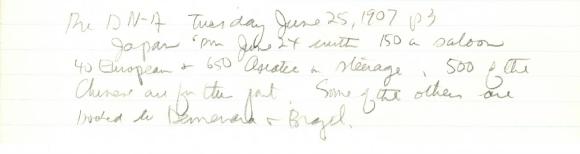 The D N-A Tuesday June 25, 1907 p3
Japan "Pm June 24 with 150 in saloon
40 European + 650 Asiatic in steerage. 500 of the
Chinese are for the port. Some of the others are
booked to Demerara + Brazil.